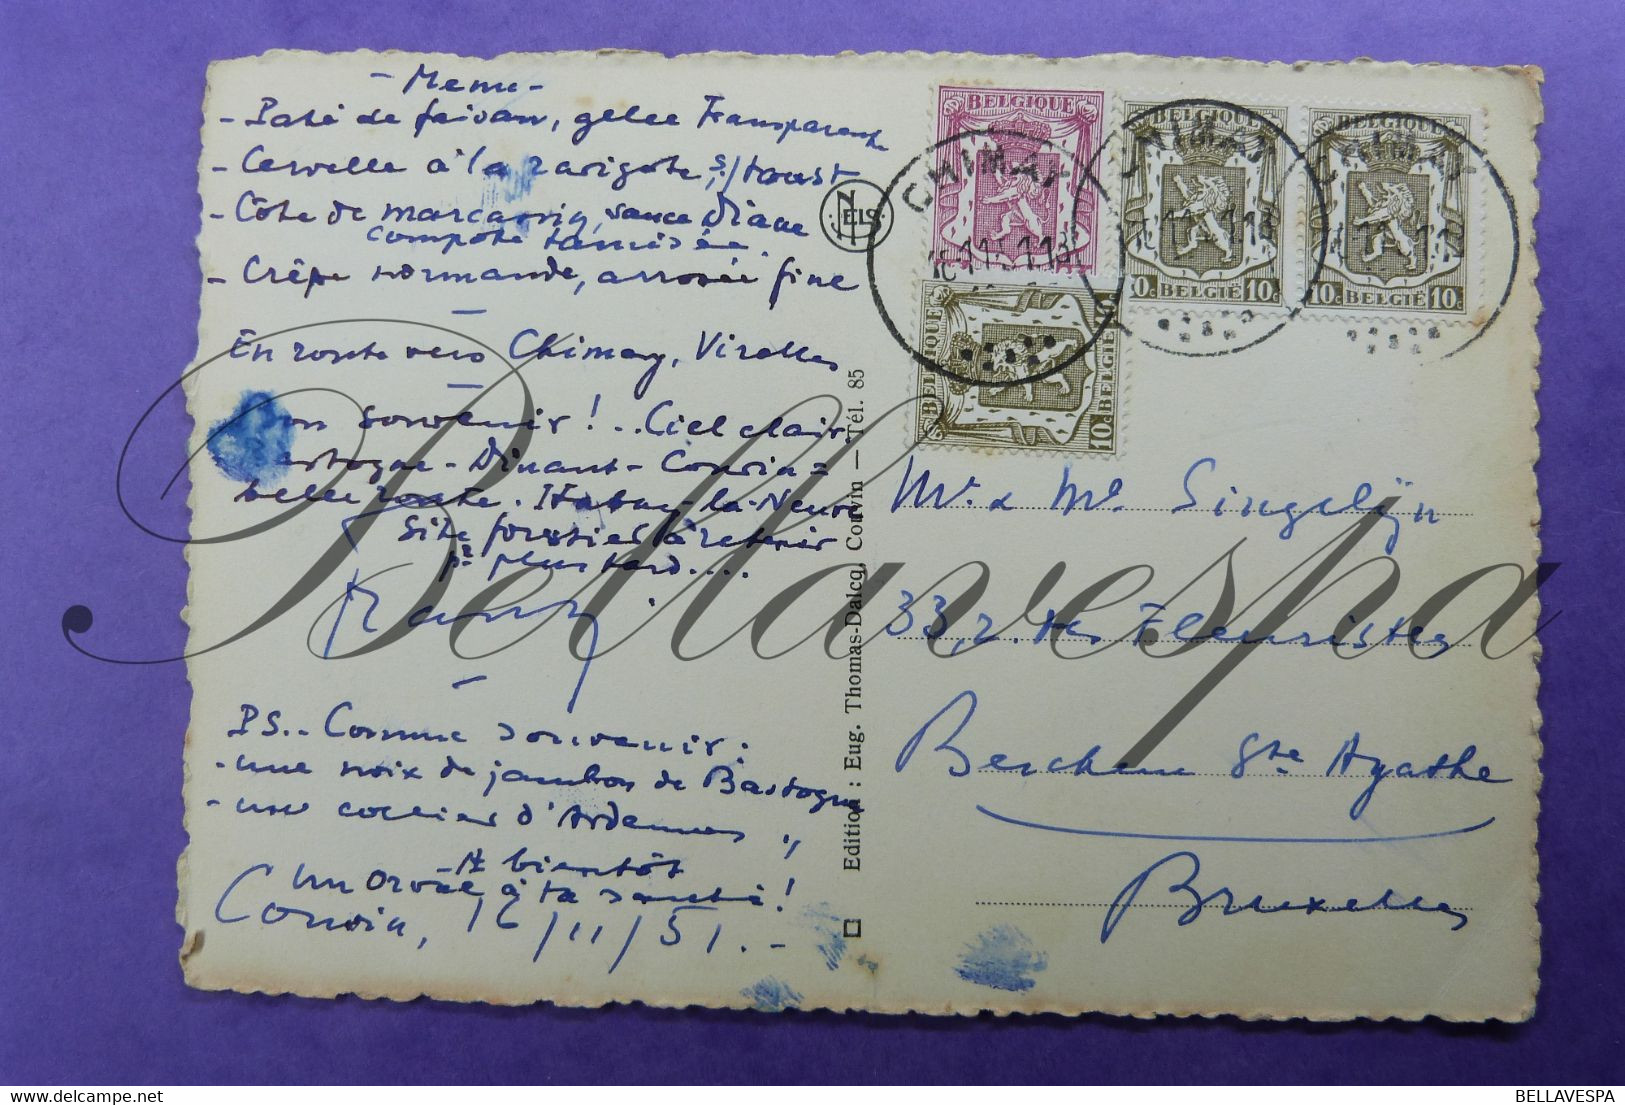 - Menu -
- Paté de faisan, gelée Transparente
- Cervelle à la ravigote, s/toast
- Côte de marcassin, sauce Diane
compote tamisée
- Crêpe normande, arrosée fine
-
En route vers Chimay, Virelles
-
Bon souvenir! .. Ciel clair.
Bastogne - Dinant - Couvin =
belle route. Habay-la-Neuve
Site forestier à retenir
pr plus tard....
-
PS.. Comme souvenir:
- une noix de jambon de Bastogne
- un collier d'Ardennes "
A bientôt
un orval à ta santé!
Couvin, 16/11/51.-
NELS
Edition : Eug. Thomas-Dalcq, Couvin — Tél. 85
BELGIQUE
CHIMAY
BELGIË 10c
CHIMAY
10c BELGIË 10c
CHIMAY
BELGIQUE
10c BELGIË 10c
Mr & Me Singelijn
33, r. des Fleuristes
Berchem Ste Agathe
Bruxelles
Bellavespa
BELLAVESPA